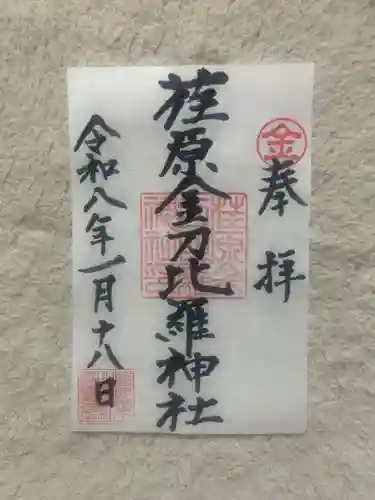 金
奉拝
荏原金刀比羅神社
令和八年一月十八日